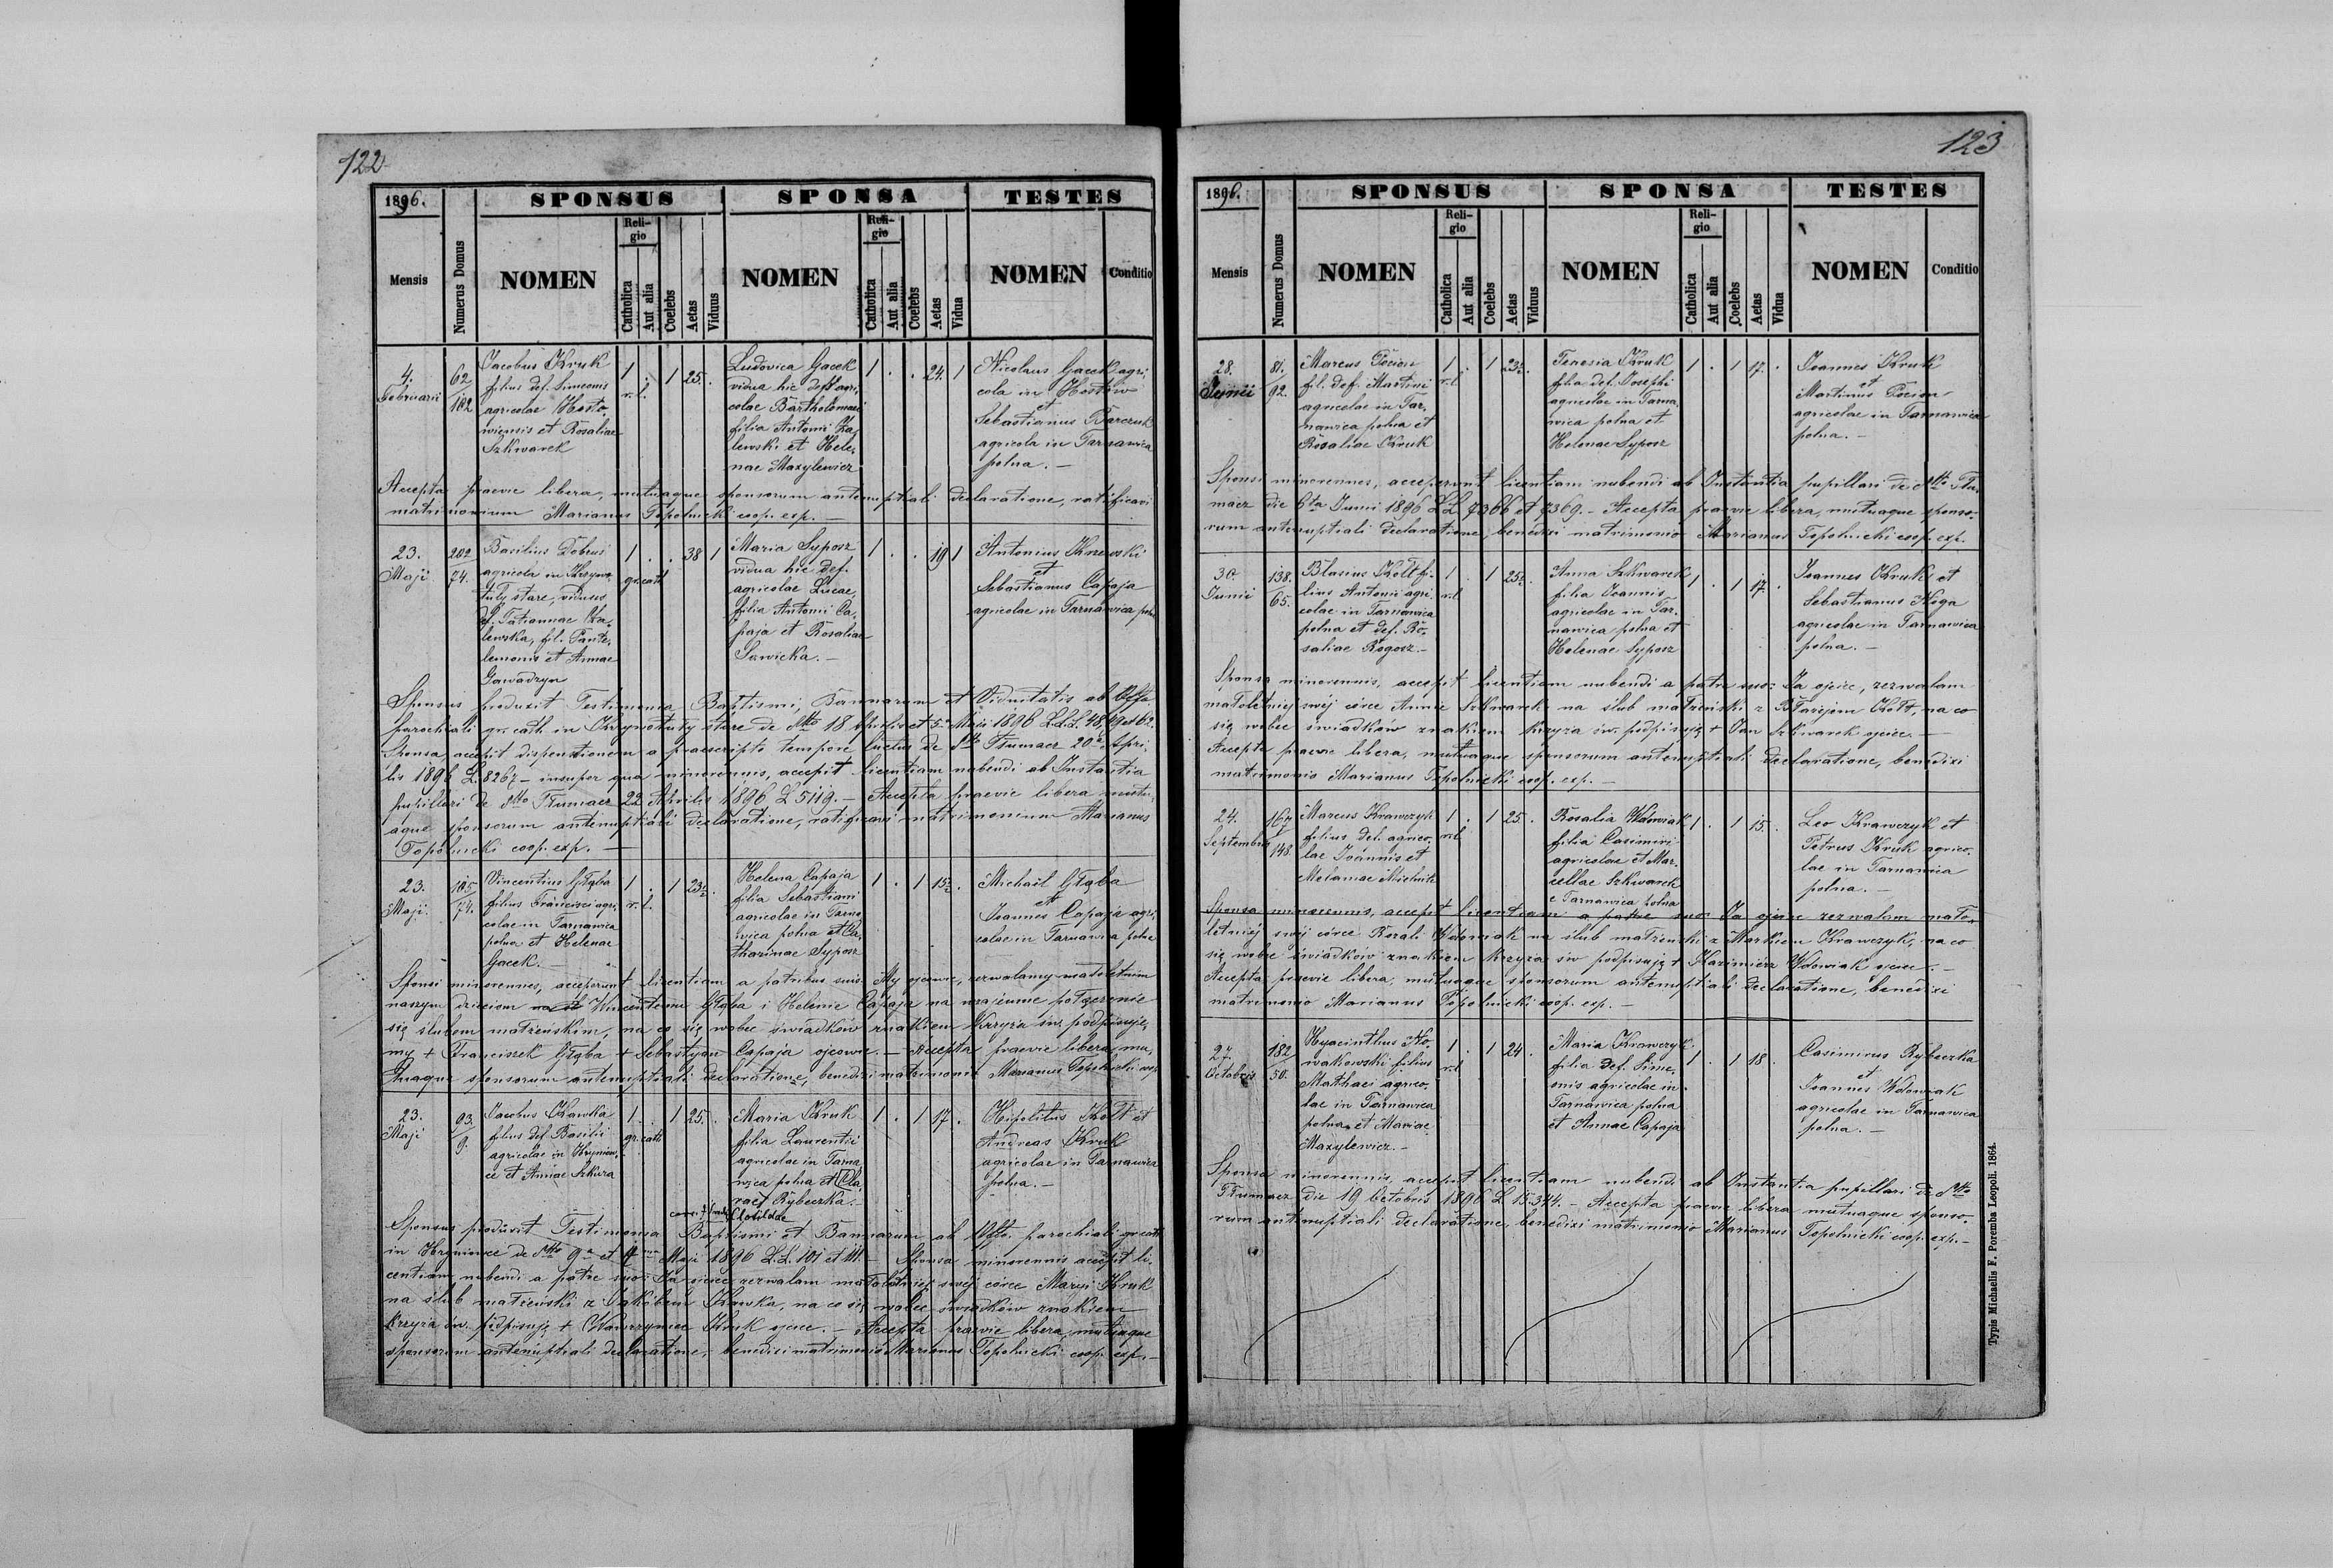 122
1896.
SPONSUS
SPONSA
TESTES
Mensis
Numerus Domus
NOMEN
Religio
Catholica
Aut alia
Coelebs
Aetas
Viduus
NOMEN
Religio
Catholica
Aut alia
Coelebs
Aetas
Vidua
NOMEN
Conditio
4.
Februarii
62/182
Jacobus Kruk
filius def. Simeonis
agricolae Hosto,
wiensis et Rosaliae
Szkwarek
1
r. l.
.
1
25.
.
Ludovica Gacek
vidua hic def. agri,
colae Bartholomaei
filia Antonii Za,
lewski et Hele,
nae Maxylewicz
1
.
.
24.
1
Nicolaus Gacek agri,
cola in Hostów
et
Sebastianus Barczuk
agricola in Tarnawica
polna. —
Accepta praevie libera, mutuaque sponsorum antenuptiali declaratione, ratificavi
matrimonium Marianus Topolnicki coop. exp. —
23.
Maji
202/74.
Basilius Dobrus
agricola in Krzywo,
tuły stare, viduus
def. Tatiannae Za,
lewska, fil. Pante,
lemonis et Annae
Gawadzyn
1
gr. cath
.
.
38
1
Maria Syposz
vidua hic def.
agricolae Lucae,
filia Antonii Ca,
paja et Rosaliae
Sawicka. —
1
.
.
19
1
Antonius Krzewski
et
Sebastianus Capaja
agricolae in Tarnawica polna
Sponsus produxit Testimonia Baptismi, Bannorum et Viduitatis ab Offo.
parochiali gr. cath in Krzywotuły stare de dtto 18 Aprilis et 5 Maji 1896
Sponsa, accepit dispensationem a praescripto tempore luctus de dtto Tłumacz 20 Apri,
lis 1896 L. 8267 — insuper qua minorennis, accepit licentiam nubendi ab Instantia
pupillari de dtto Tłumacz 22 Aprilis 1896 L 5119. — Accepta praevie libera mutu,
aque sponsorum antenuptiali declaratione, ratificavi matrimonium Marianus
Topolnicki coop. exp. —
23.
Maji.
185/74.
Vincentius Głąba
filius Francisci agri,
colae in Tarnawica
polna et Helenae
Gacek. —
1
r. l.
.
1
23½
.
Helena Capaja
filia Sebastiani
agricolae in Tarna
wica polna et Ca,
tharinae Syposz
1
.
1
15½
.
Michaël Głąba
et
Joannes Capaja agri,
colae in Tarnawica polna
Sponsi minorennes, acceperunt licentiam a patribus suis: My ojcowie, zezwalamy małoletnim
naszym dzieciom Wincentemu Głąba i Helenie Capaja na wzajemne połączenie
się ślubem małżeńskim, na co się wobec świadków znakiem Krzyża św. podpisuje,
my + Franciszek Głąba + Sebastyan Capaja ojcowie. — Accepta praevie libera, mu,
tuaque sponsorum antenuptiali declaratione, benedixi matrimonio Marianus Topolnicki
23.
Maji
93/9.
Jacobus Kawka
filius def. Basilii
agricolae in Hryniow,
ce et Annae Szkwra
1
gr. cath
.
1
25.
.
Maria Kruk
filia Laurentii
agricolae in Tarna
wica polna et Cla,
rae Rybeczka. —
Clotildae
1
.
1
17
.
Hipolitus Kott et
Andreas Kruk
agricolae in Tarnawica
polna. —
Sponsus produxit Testimonia Baptismi et Bannorum ab Offo. parochiali gr. cath
in Hryniowce de dtto 9 et Maji 1896 L.L. 101 et 111. — Sponsa minorennis accepit li,
centiam nubendi a patre suo: Ja ojciec zezwalam małoletniej swej córce Maryi Kruk
na ślub małżeński z Jakóbem Kawka, na co się wobec świadków znakiem
Krzyża św. podpisuję + Wawrzyniec Kruk ojciec. — Accepta praevie libera, mutuaque
sponsorum antenuptiali declaratione, benedixi matrimonio Marianus Topolnicki coop. exp. —
123
1896.
SPONSUS
SPONSA
TESTES
Mensis
Numerus Domus
NOMEN
Religio
Catholica
Aut alia
Coelebs
Aetas
Viduus
NOMEN
Religio
Catholica
Aut alia
Coelebs
Aetas
Vidua
NOMEN
Conditio
28.
Junii
81./92.
Marcus Pocion
fil. def. Martini
agricolae in Tar,
nawica polna et
Rosaliae Kruk
1
r. l
.
1
23½
.
Teresia Kruk
filia def. Josephi
agricolae in Tarna,
wica polna et
Helenae Syposz
1
.
1
17.
.
Joannes Kruk
et
Martinus Pocion
agricolae in Tarnawica
polna. —
Sponsi minorennes, acceperunt licentiam nubendi ab Instantia pupillari de dtto Tłu,
macz die 6ta Junii 1896 L.L. 7366 et 7369. — Accepta praevie libera, mutuaque sponso,
rum antenuptiali declaratione, benedixi matrimonio Marianus Topolnicki coop. exp.
30.
Junii
138./65.
Blasius Kott fi,
lius Antonii agri,
colae in Tarnawica
polna et def. Ro,
saliae Rogosz. —
1
r. l
.
1
25½
.
Anna Szkwarek
filia Joannis
agricolae in Tar,
nawica polna et
Helenae Syposz
1
.
1
17.
.
Joannes Kruk et
Sebastianus Noga
agricolae in Tarnawica
polna. —
Sponsa minorennis, accepit licentiam nubendi a patre suo: Ja ojciec, zezwalam
małoletniej swej córce Annie Szkwarek na ślub małżeński z Błażejem Kott, na co
się wobec świadków znakiem krzyża św. podpisuję + Jan Szkwarek ojciec. —
Accepta praevie libera, mutuaque sponsorum antenuptiali declaratione, benedixi
matrimonio Marianus Topolnicki coop. exp. —
24.
Septembris
167/148.
Marcus Krawczyk
filius def. agrico,
lae Joannis et
Melaniae Mielnik
1
r. l
.
1
25.
.
Rosalia Wdowiak
filia Casimiri
agricolae et Mar,
cellae Szkwarek
e Tarnawica polna
1
.
1
15.
.
Leo Krawczyk et
Petrus Kruk agrico,
lae in Tarnawica
polna. —
Sponsa minorennis, accepit licentiam a patre suo: Ja ojciec zezwalam mało,
letniej swej córce Rozali Wdowiak na ślub małżeński z Markiem Krawczyk, na co
się wobec świadków znakiem krzyża św podpisuję + Kazimierz Wdowiak ojciec. —
Accepta praevie libera, mutuaque sponsorum antenuptiali declaratione, benedixi
matrimonio Marianus Topolnicki coop. exp. —
27.
Octobris
182/50.
Hyacinthus No,
wakowski filius
Matthaei agrico,
lae in Tarnawica
polna et Mariae
Maxylewicz. —
1
r. l
.
1
24
.
Maria Krawczyk
filia def. Sime,
onis agricolae in
Tarnawica polna
et Annae Capaja
1
.
1
18
.
Casimirus Rybeczka
et
Joannes Wdowiak
agricolae in Tarnawica
polna. —
Sponsa minorennis, accepit licentiam nubendi ab Instantia pupillari de dtto
Tłumacz die 19 Octobris 1896 L 15.344. — Accepta praevie libera mutuaque sponso,
rum antenuptiali declaratione, benedixi matrimonio Marianus Topolnicki coop. exp. —
Typis Michaelis F. Poremba Leopoli. 1864.